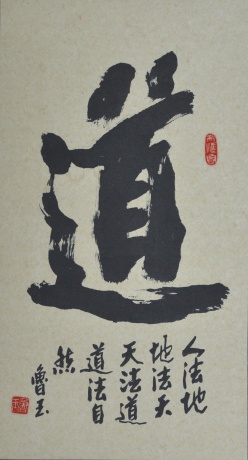 道
人法地
地法天
天法道
道法自
然
魯玉